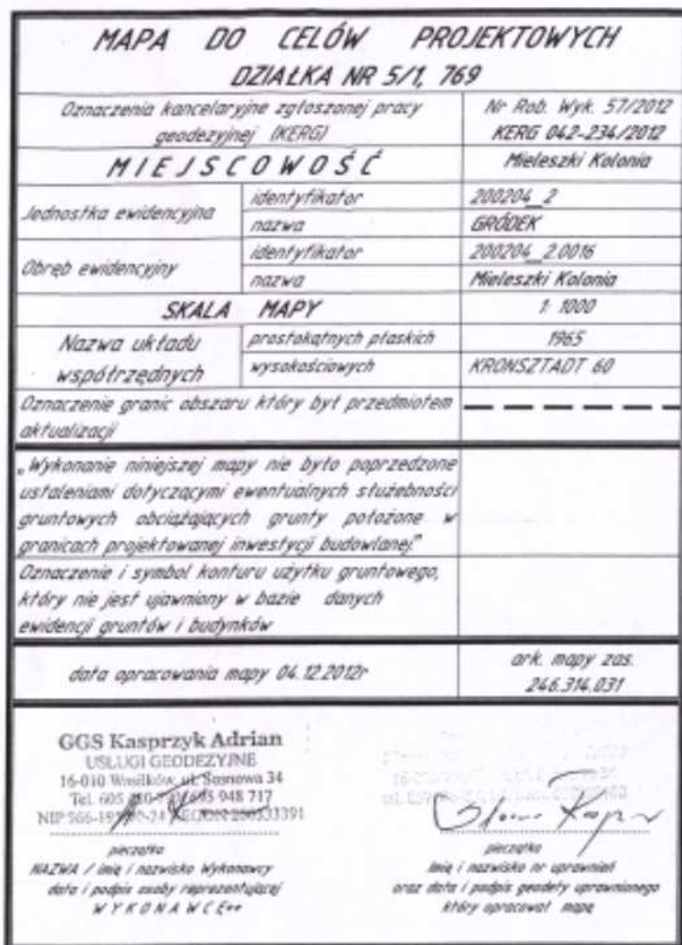 MAPA DO CELÓW PROJEKTOWYCH
DZIAŁKA NR 5/1, 769
Oznaczenia kancelaryjne zgłoszonej pracy geodezyjnej (KERG)
Nr Rob. Wyk. 57/2012
KERG 042-234/2012
MIEJSCOWOŚĆ
Mieleszki Kolonia
Jednostka ewidencyjna
identyfikator
200204_2
nazwa
GRÓDEK
Obręb ewidencyjny
identyfikator
200204_2.0016
nazwa
Mieleszki Kolonia
SKALA MAPY
1: 1000
Nazwa układu
współrzędnych
prostokątnych płaskich
1965
wysokościowych
KRONSZTADT 60
Oznaczenie granic obszaru który był przedmiotem
aktualizacji
„Wykonanie niniejszej mapy nie było poprzedzone
ustaleniami dotyczącymi ewentualnych służebności
gruntowych obciążających grunty położone w
granicach projektowanej inwestycji budowlanej."
Oznaczenie i symbol konturu użytku gruntowego,
który nie jest ujawniony w bazie danych
ewidencji gruntów i budynków
data opracowania mapy 04.12.2012r
ark. mapy zas.
246.314.031
GGS Kasprzyk Adrian
USŁUGI GEODEZYJNE
16-010 Wasilków, ul. Sosnowa 34
Tel. 605 948 717
NIP 966-
pieczątka
NAZWA / imię i nazwisko Wykonawcy
data i podpis osoby reprezentującej
WYKONAWCĘ++
pieczątka
imię i nazwisko nr uprawnień
oraz data i podpis geodety uprawnionego
który opracował mapę